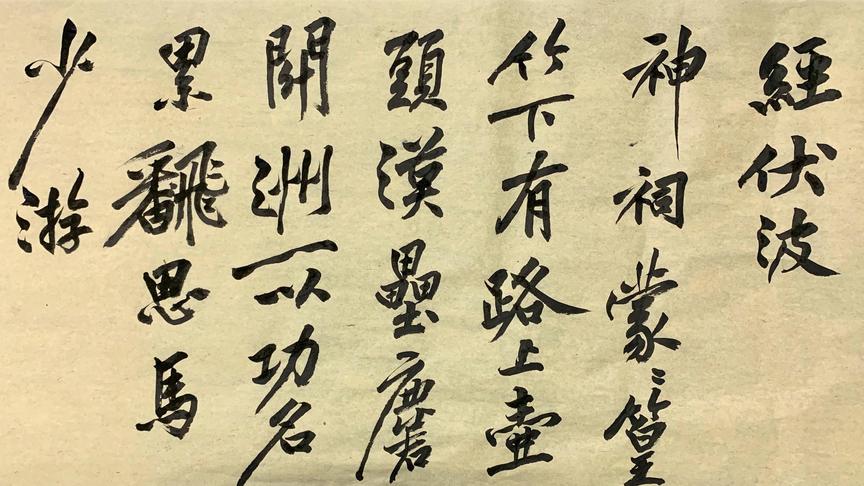 經伏波
神祠蒙〻篁
竹下有路上壺
頭漢壘麏
開洲一以功名
累飜思馬
少游